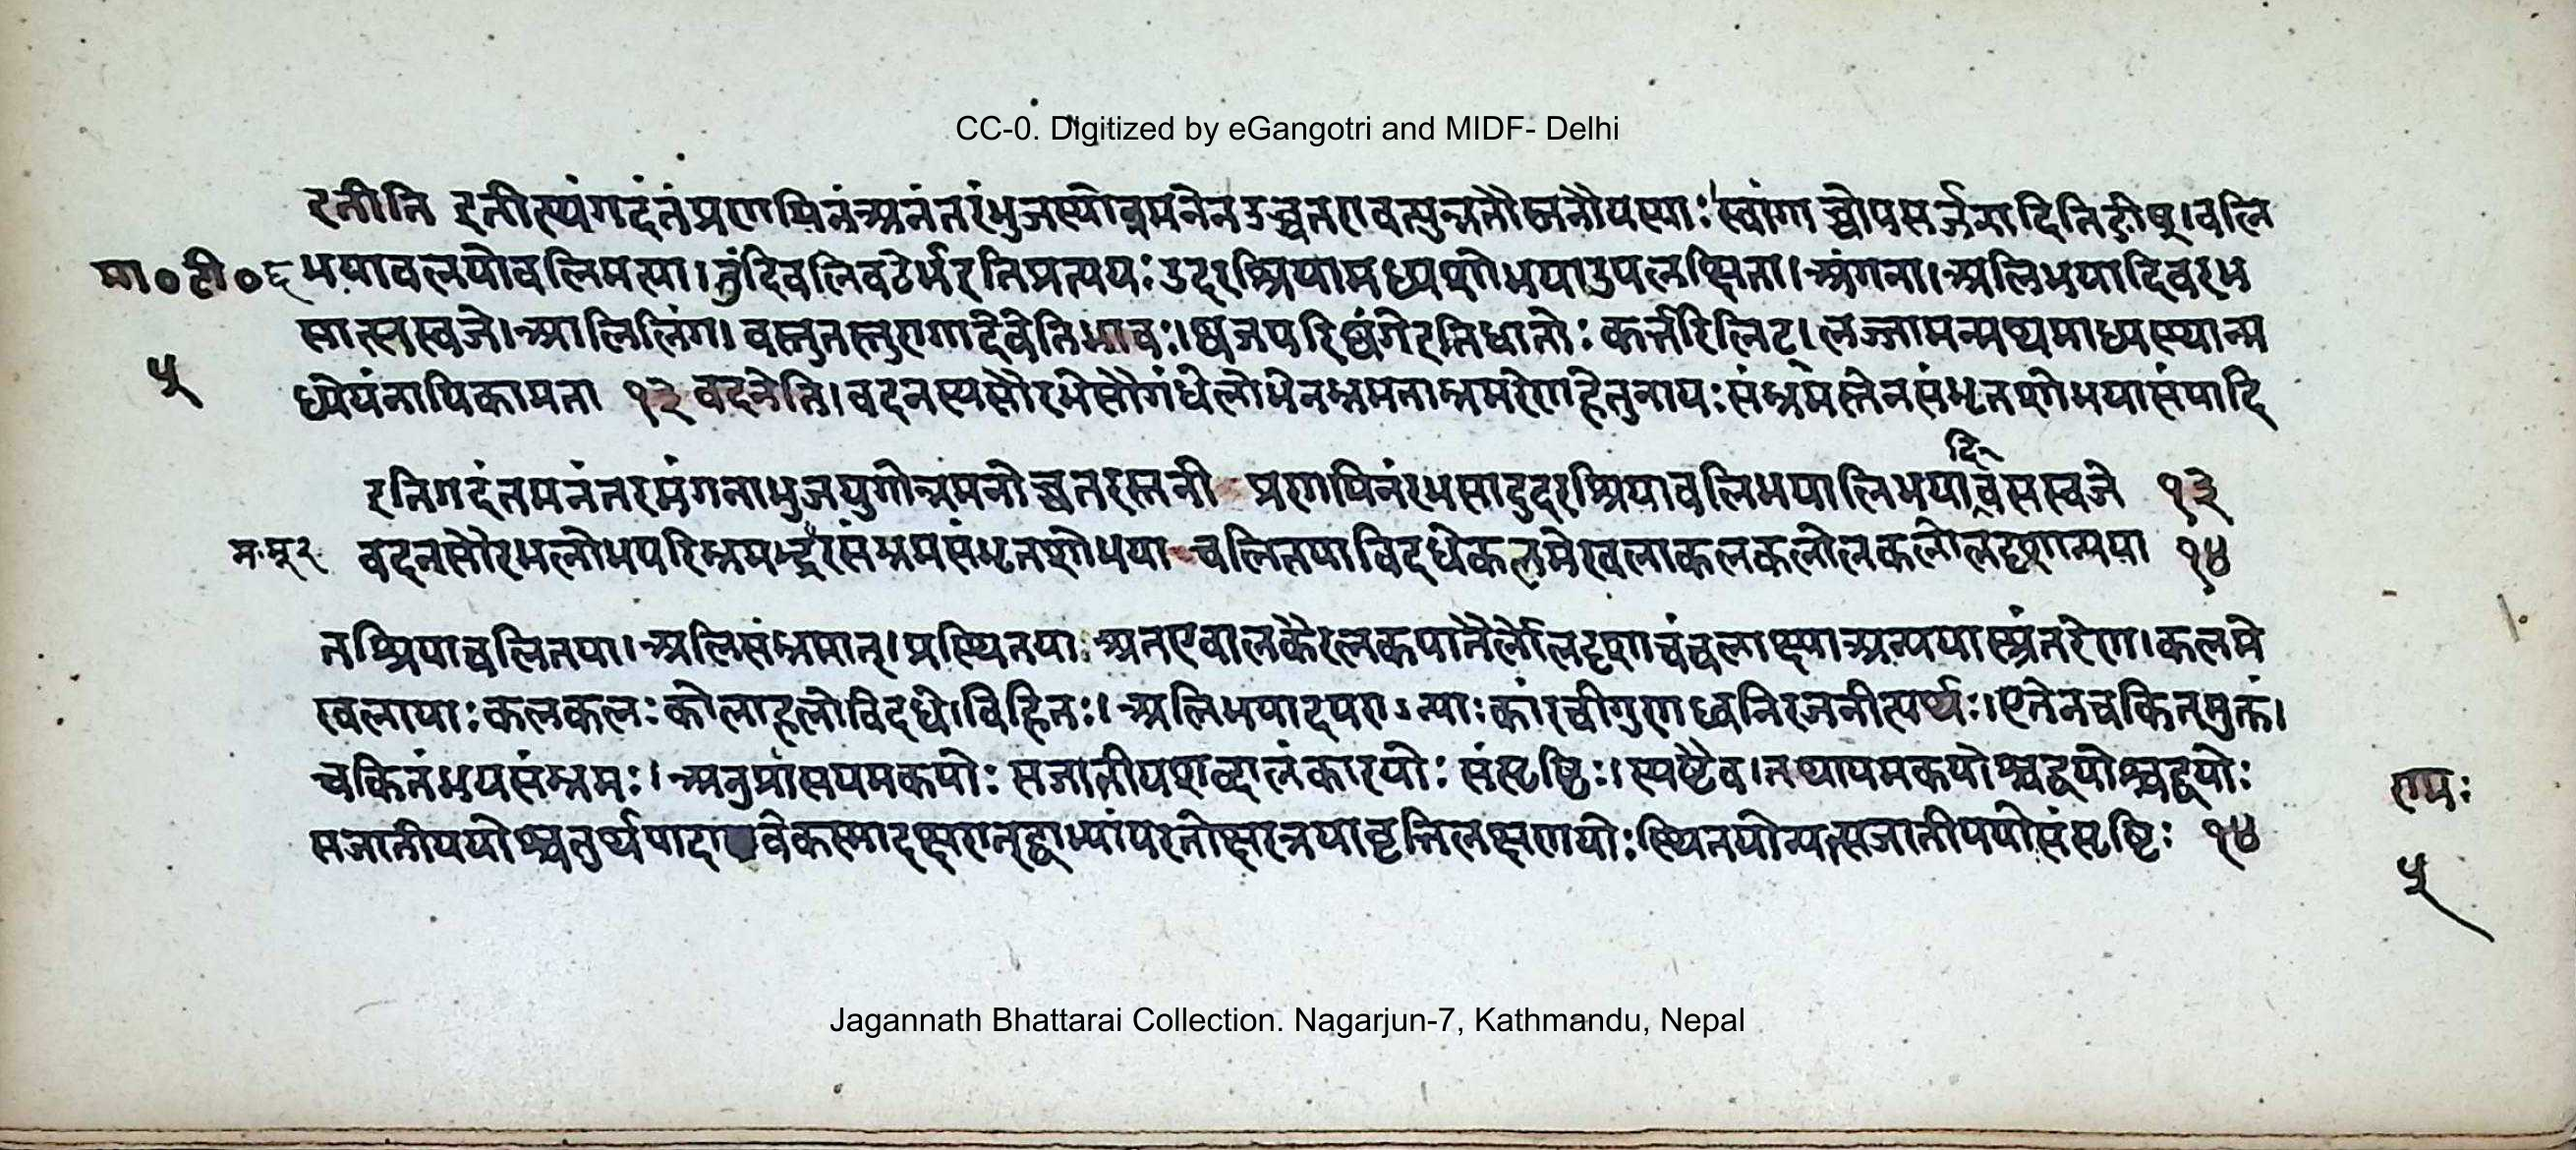 CC-0. Digitized by eGangotri and MIDF- Delhi
इतीति इतीत्थंगदंतंप्रणयिनंअनंतरंभुजस्योन्नमनेनउच्चतरावत्युन्नतौस्तनौयस्याः स्वांगाच्चोपसर्जनादितिङीष्।वलि
मा०टी०६
भयावलयोवलिमत्या।तुंदिवलिवटेर्भइतिप्रत्ययः उदरश्रियामध्यशोभयाउपलक्षिता।अंगना।अलिभयादिवरभ
सात्सस्वजे।आलिलिंग।वस्तुतस्तुरागादेवेतिभावः।ष्वजपरिष्वंगेइतिधातोः कर्त्तरिलिट्।लज्जामन्मथमाध्यस्थ्यान्म
५
ध्येयंनायिकामता १३ वदनेति।वदनस्यसौरभेसौगंध्येलोभेनभ्रमताभ्रमरेणहेतुनायःसंभ्रमस्तेनसंभृतशोभयासंपादि
दि
इतिगदंतमनंतरमंगनाभुजयुगोन्नमनोच्चतरस्तनी प्रणयिनंरभसादुदरश्रियावलिभयालिभयावसस्वजे १३
वदनसौरभलोभपरिभ्रमद्भ्रमरसंभ्रमसंभृतशोभया चलितयाविदधेकलमेखलाकलकलोलकलोलदृशान्यया १४
तश्रियाचलितया।अलिसंभ्रमात्।प्रस्थितयाअतएवालकैरलकपातैर्लोलदृशाचंचलाक्ष्याअन्ययास्त्र्यंतरेण।कलमे
खलायाःकलकलःकोलाहलोविदधे।विहितः।अलिभयादपरान्याःकांरचीगुणध्वनिरजनीत्यर्थः।एतेनचकितमुक्तं।
चकितंभयसंभ्रमः।अनुप्रासयमकयोः सजातीयशब्दालंकारयोः संसृष्टिः।स्पष्टैव।तथायमकयोश्चद्वयोश्चद्वयोः
रामः
सजातीययोश्चतुर्थपादावेकस्मादक्षरात्द्वाभ्यांपरतोक्षरत्रयावृत्तिलक्षणयोःस्थितयोन्यत्सजातीययोसंसृष्टिः १४
५
Jagannath Bhattarai Collection. Nagarjun-7, Kathmandu, Nepal